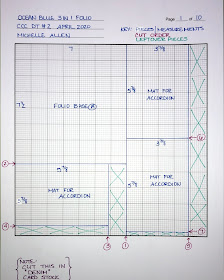 OCEAN BLUE 3 IN 1 FOLIO
Page 1 of 10
CCC DT #2 APRIL 2020
KEY: PIECES/MEASUREMENTS
MICHELLE ALLEN
CUT ORDER
LEFTOVER PIECES
7
3 3/4
7 1/2
FOLIO BASE(A)
5 3/4
MAT FOR
ACCORDION
5 3/4
3 3/4
MAT FOR
ACCORDION
5 3/4
MAT FOR
ACCORDION
NOTE:
CUT THIS IN
"DENIM"
CARD STOCK